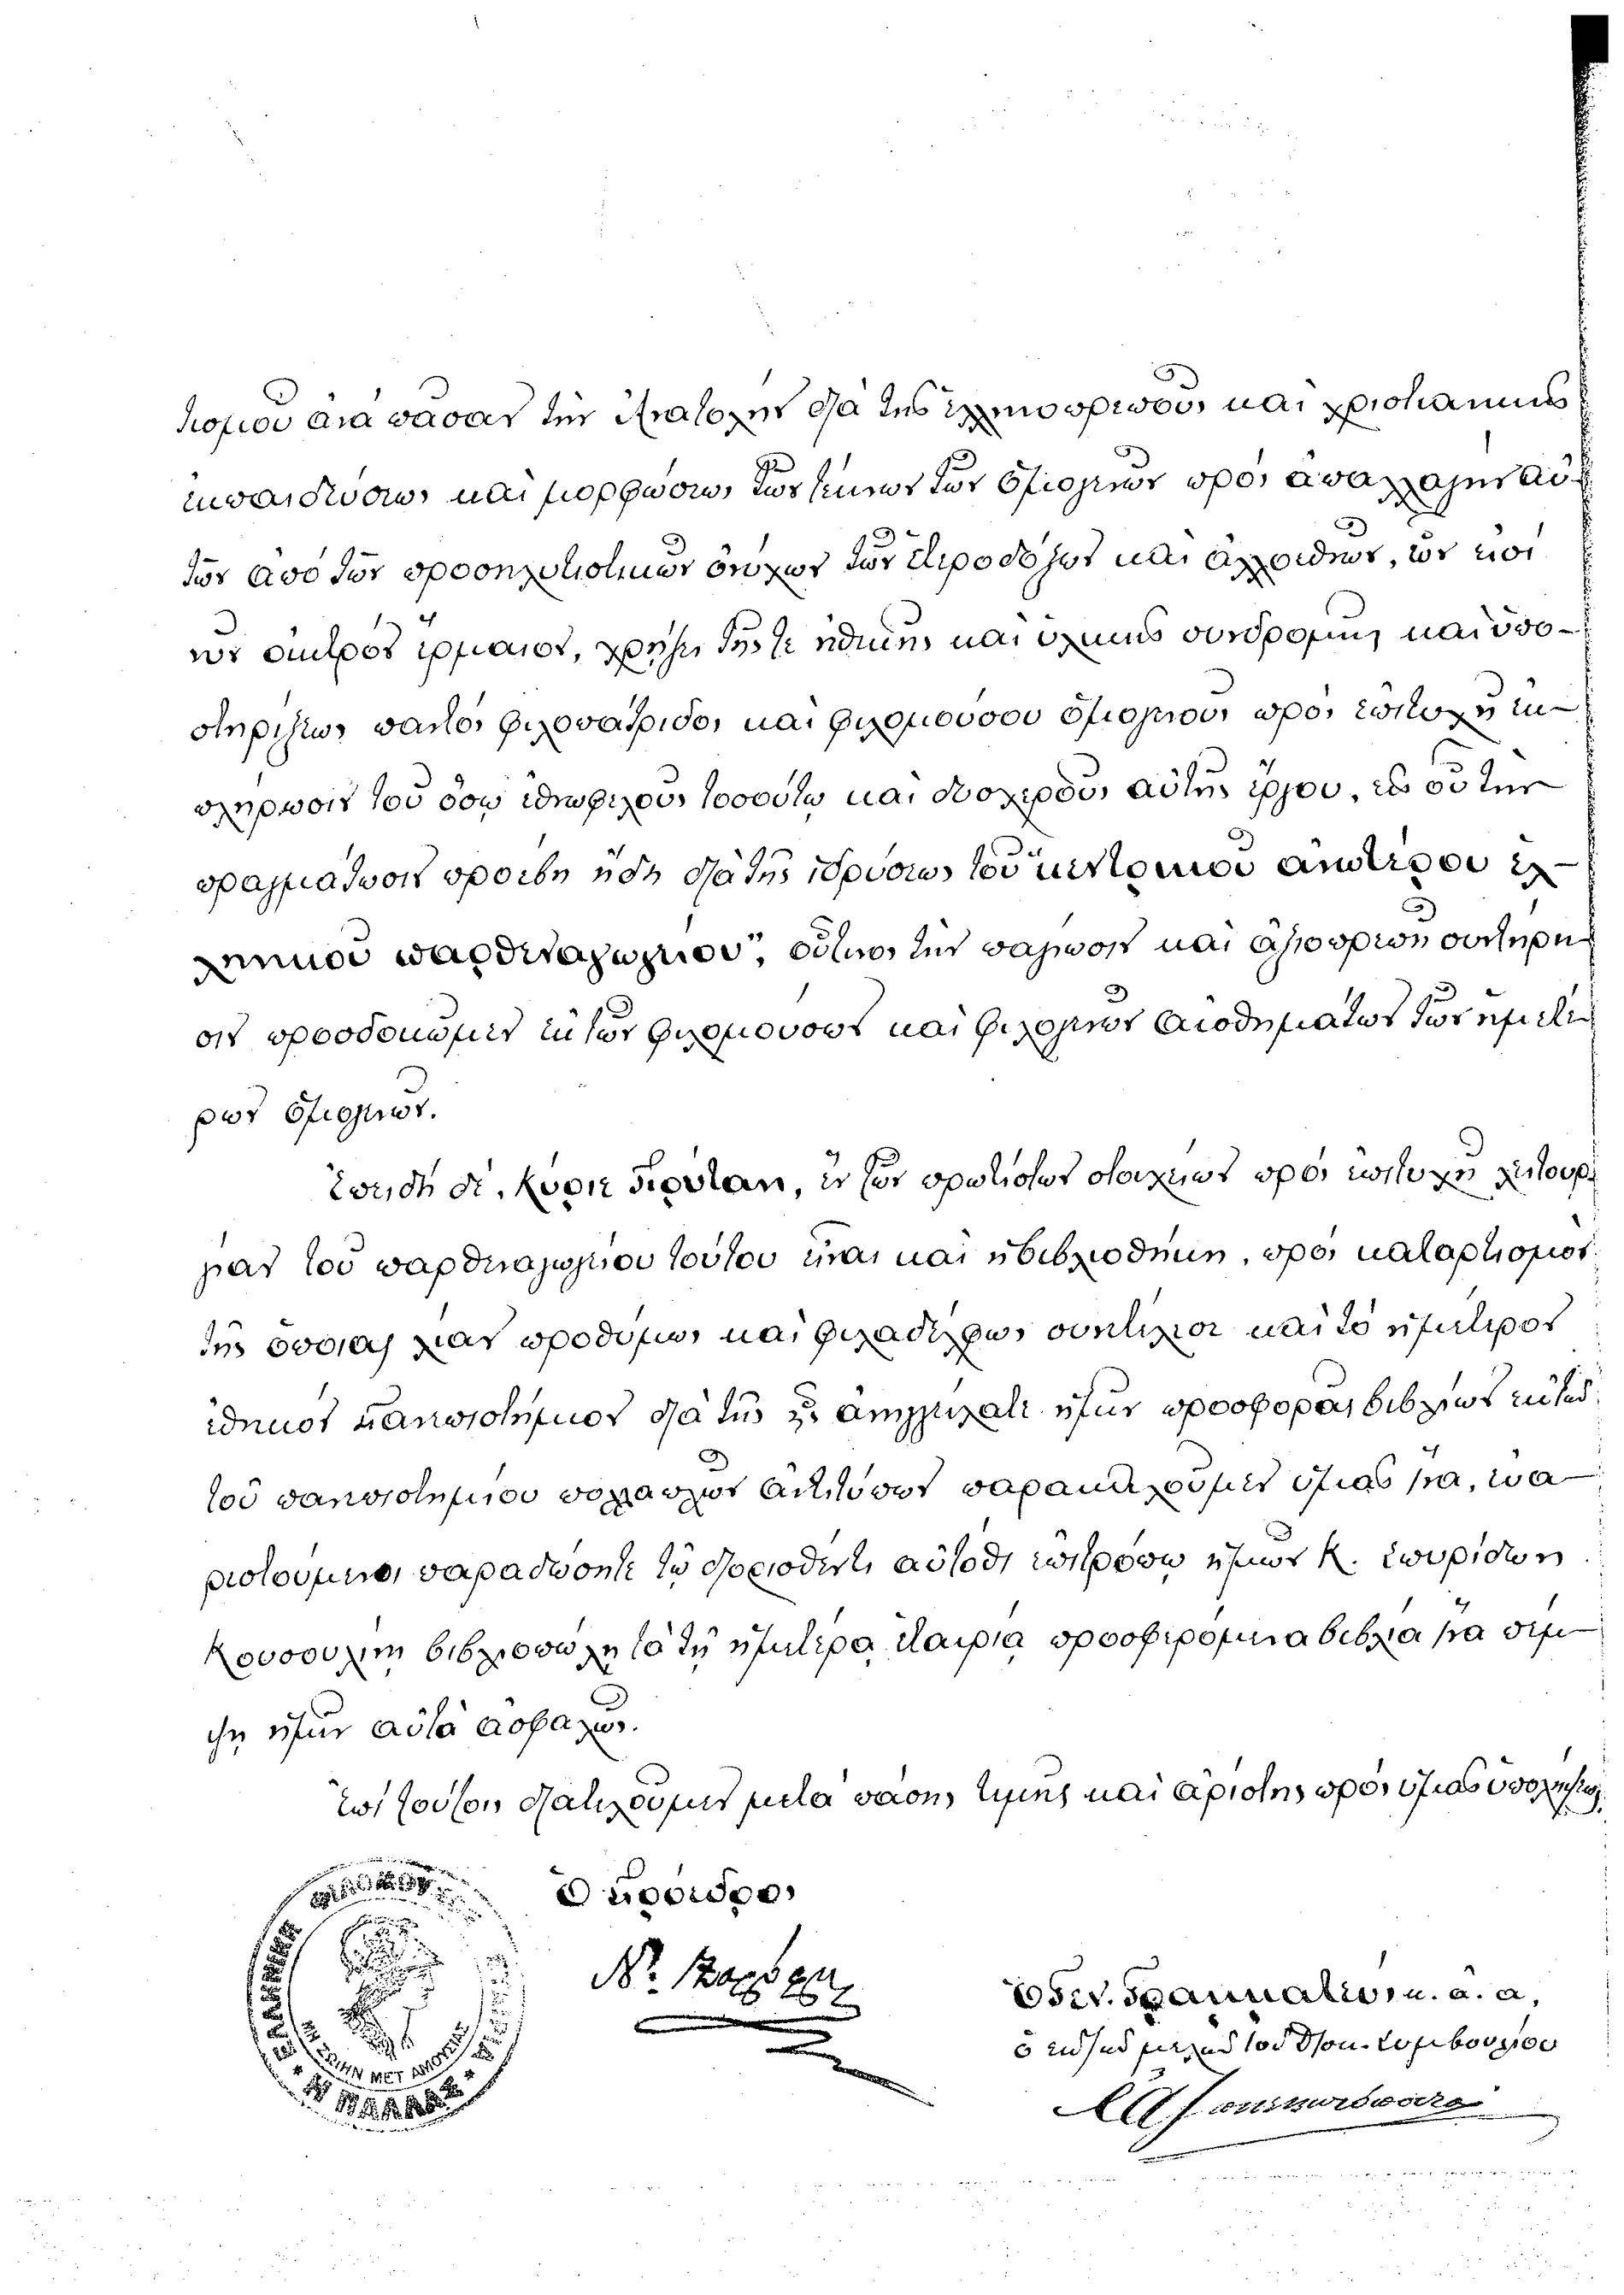 τισμού ἀνὰ πᾶσαν τὴν Ἀνατολὴν διὰ τῆς ἑλληνοπρεποῦς καὶ χριστιανικῆς
ἐκπαιδεύσεως καὶ μορφώσεως τῶν τέκνων τῶν ὁμογενῶν πρὸς ἀπαλλαγὴν αὐ-
τῶν ἀπὸ τῶν προσηλυτιστικῶν ὀνύχων τῶν ἑτεροδόξων καὶ ἀλλοεθνῶν, ὧν εἰσὶ
νῦν οἰκτρὸν ἕρμαιον, χρῄζει τῆς τε ἠθικῆς καὶ ὑλικῆς συνδρομῆς καὶ ὑπο-
στηρίξεως παντὸς φιλοπάτριδος καὶ φιλομούσου ὁμογενοῦς πρὸς ἐπιτυχῆ ἐκ-
πλήρωσιν τοῦ ὅσῳ ἐθνωφελοῦς τοσούτῳ καὶ δυσχεροῦς αὐτῆς ἔργου, εἰς οὗ τὴν
πραγμάτωσιν προέβη ἤδη διὰ τῆς ἱδρύσεως τοῦ "κεντρικοῦ ἀνωτέρου ἑλ-
ληνικοῦ παρθεναγωγείου", οὗτινος τὴν παγίωσιν καὶ ἀξιοπρεπῆ συντήρη-
σιν προσδοκῶμεν ἐκ τῶν φιλομούσων καὶ φιλογενῶν αἰσθημάτων τῶν ἡμετέ-
ρων ὁμογενῶν.
Ἐπειδὴ δέ, Κύριε Πρύτανι, ἓν τῶν πρωτίστων στοιχείων πρὸς ἐπιτυχῆ λειτουρ-
γίαν τοῦ παρθεναγωγείου τούτου εἶναι καὶ ἡ βιβλιοθήκη, πρὸς καταρτισμὸν
τῆς ὁποίας λίαν προθύμως καὶ φιλαδέλφως συντελεῖ καὶ τὸ ἡμέτερον
ἐθνικὸν πανεπιστήμιον διὰ τῆς εἰς ἀπηγγείλατε ἡμῖν προσφορᾶς βιβλίων ἐκ τῶν
τοῦ πανεπιστημίου πολλαπλῶν ἀντιτύπων παρακαλοῦμεν ὑμᾶς ἵνα, εὐα-
ρεστούμενοι παραδώσητε τῷ διορισθέντι αὐτόθι ἐπιτρόπῳ ἡμῶν κ. Σπυρίδωνι
Κουσουλίνῃ βιβλιοπώλῃ τὰ τῇ ἡμετέρᾳ ἑταιρίᾳ προσφερόμενα βιβλία ἵνα πέμ-
ψῃ ἡμῖν αὐτὰ ἀσφαλῶς.
Ἐπὶ τούτοις διατελοῦμεν μετὰ πάσης τιμῆς καὶ ἀρίστης πρὸς ὑμᾶς ὑπολήψεως.
Ὁ πρόεδρος
Ὁ Γεν. Γραμματεὺς κ. ἀ. ἀ,
ὁ ἐκ τῶν μελῶν τοῦ Διοικ. Συμβουλίου
Η ΠΑΛΛΑΣ